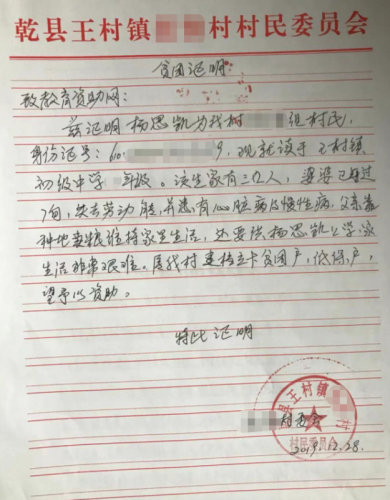 乾县王村镇 村村民委员会
贫困证明
致教育资助网：
兹证明杨思凯为我村 组村民，
身份证号：610 9，现就读于王村镇
初级中学 年级。该生家有三口人，婆婆已超过
7旬，失去劳动能，并患有心脏病及慢性病，父亲靠
种地卖粮维持家里生活，还要供杨思凯上学，家
生活非常艰难。属我村建档立卡贫困户，低保户，
望予以资助。
特此证明
村委会
2019.12.28.
县王村镇 村
村民委员会